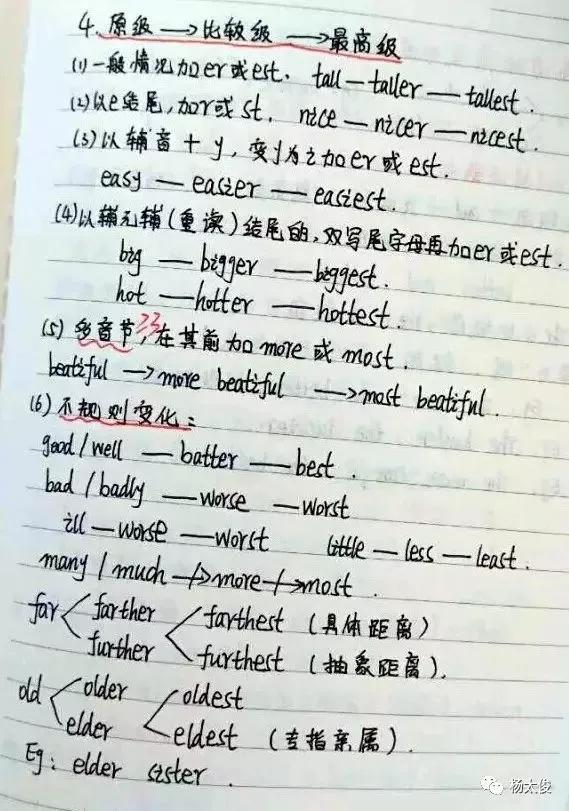 4. 原级 → 比较级 → 最高级
(1) 一般情况加er或est. tall — taller — tallest.
(2) 以e结尾,加r或st. nice — nicer — nicest.
(3) 以辅音 + y, 变y为i加er或est.
easy — easier — easiest.
(4) 以辅元辅(重读)结尾的,双写尾字母再加er或est.
big — bigger — biggest.
hot — hotter — hottest.
(5) 多音节词,在其前加 more 或 most.
beatiful → more beatiful → most beatiful.
(6) 不规则变化:
good/well — batter — best.
bad / badly — worse — worst
ill — worse — worst little — less — least.
many / much → more → most.
far farther farthest (具体距离)
further furthest (抽象距离).
old older oldest
elder eldest (专指亲属).
Eg: elder sister.
杨太俊